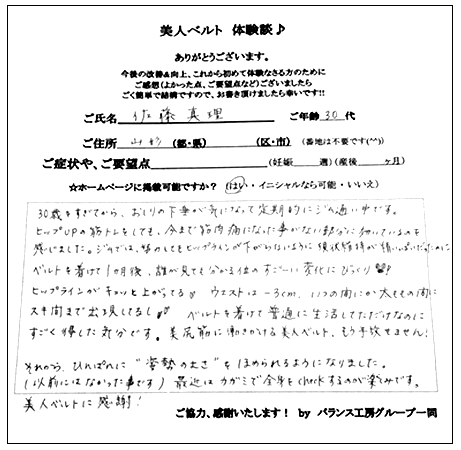 美人ベルト 体験談♪
ありがとうございます。
今後の改善&向上、これから初めて体験なさる方のために
ご感想(よかった点、ご要望点など)ございましたら
ごく簡単で結構ですので、お書き頂けましたら幸いです!!
ご氏名 佐藤 真理 ご年齢 30 代
ご住所 (都・県) (区・市) (番地は不要です(^^))
ご症状や、ご要望点 (妊娠 週)(産後 ヶ月)
☆ホームページに掲載可能ですか? (はい・イニシャルなら可能・いいえ)
30歳をすぎてから、おしりの下垂が気になって定期的にジム通い中です。
ヒップUPの筋トレをしても、今まで筋肉痛になった事がない部分に効いているのを
感じました。ジムでは、努力してもヒップラインが下がらないように現状維持が精いっぱいだったのに
ベルトを着けて1ヶ月後、誰が見ても分かる位のすごーい変化にびっくり
ヒップラインがキュッと上がってる ウエストは-3cm、いつの間にか太ももの間に
スキ間まで出現してるし ベルトを着けて普通に生活してただけなのに
すごく得した気分です。美尻筋に働きかける美人ベルト、もう手放せません!
それから、ひんぱんに"姿勢の良さ"をほめられるようになりました。
(以前にはなかった事です) 最近はカガミで全身をcheckするのが楽しみです。
美人ベルトに感謝!
ご協力、感謝いたします! by バランス工房グループ一同